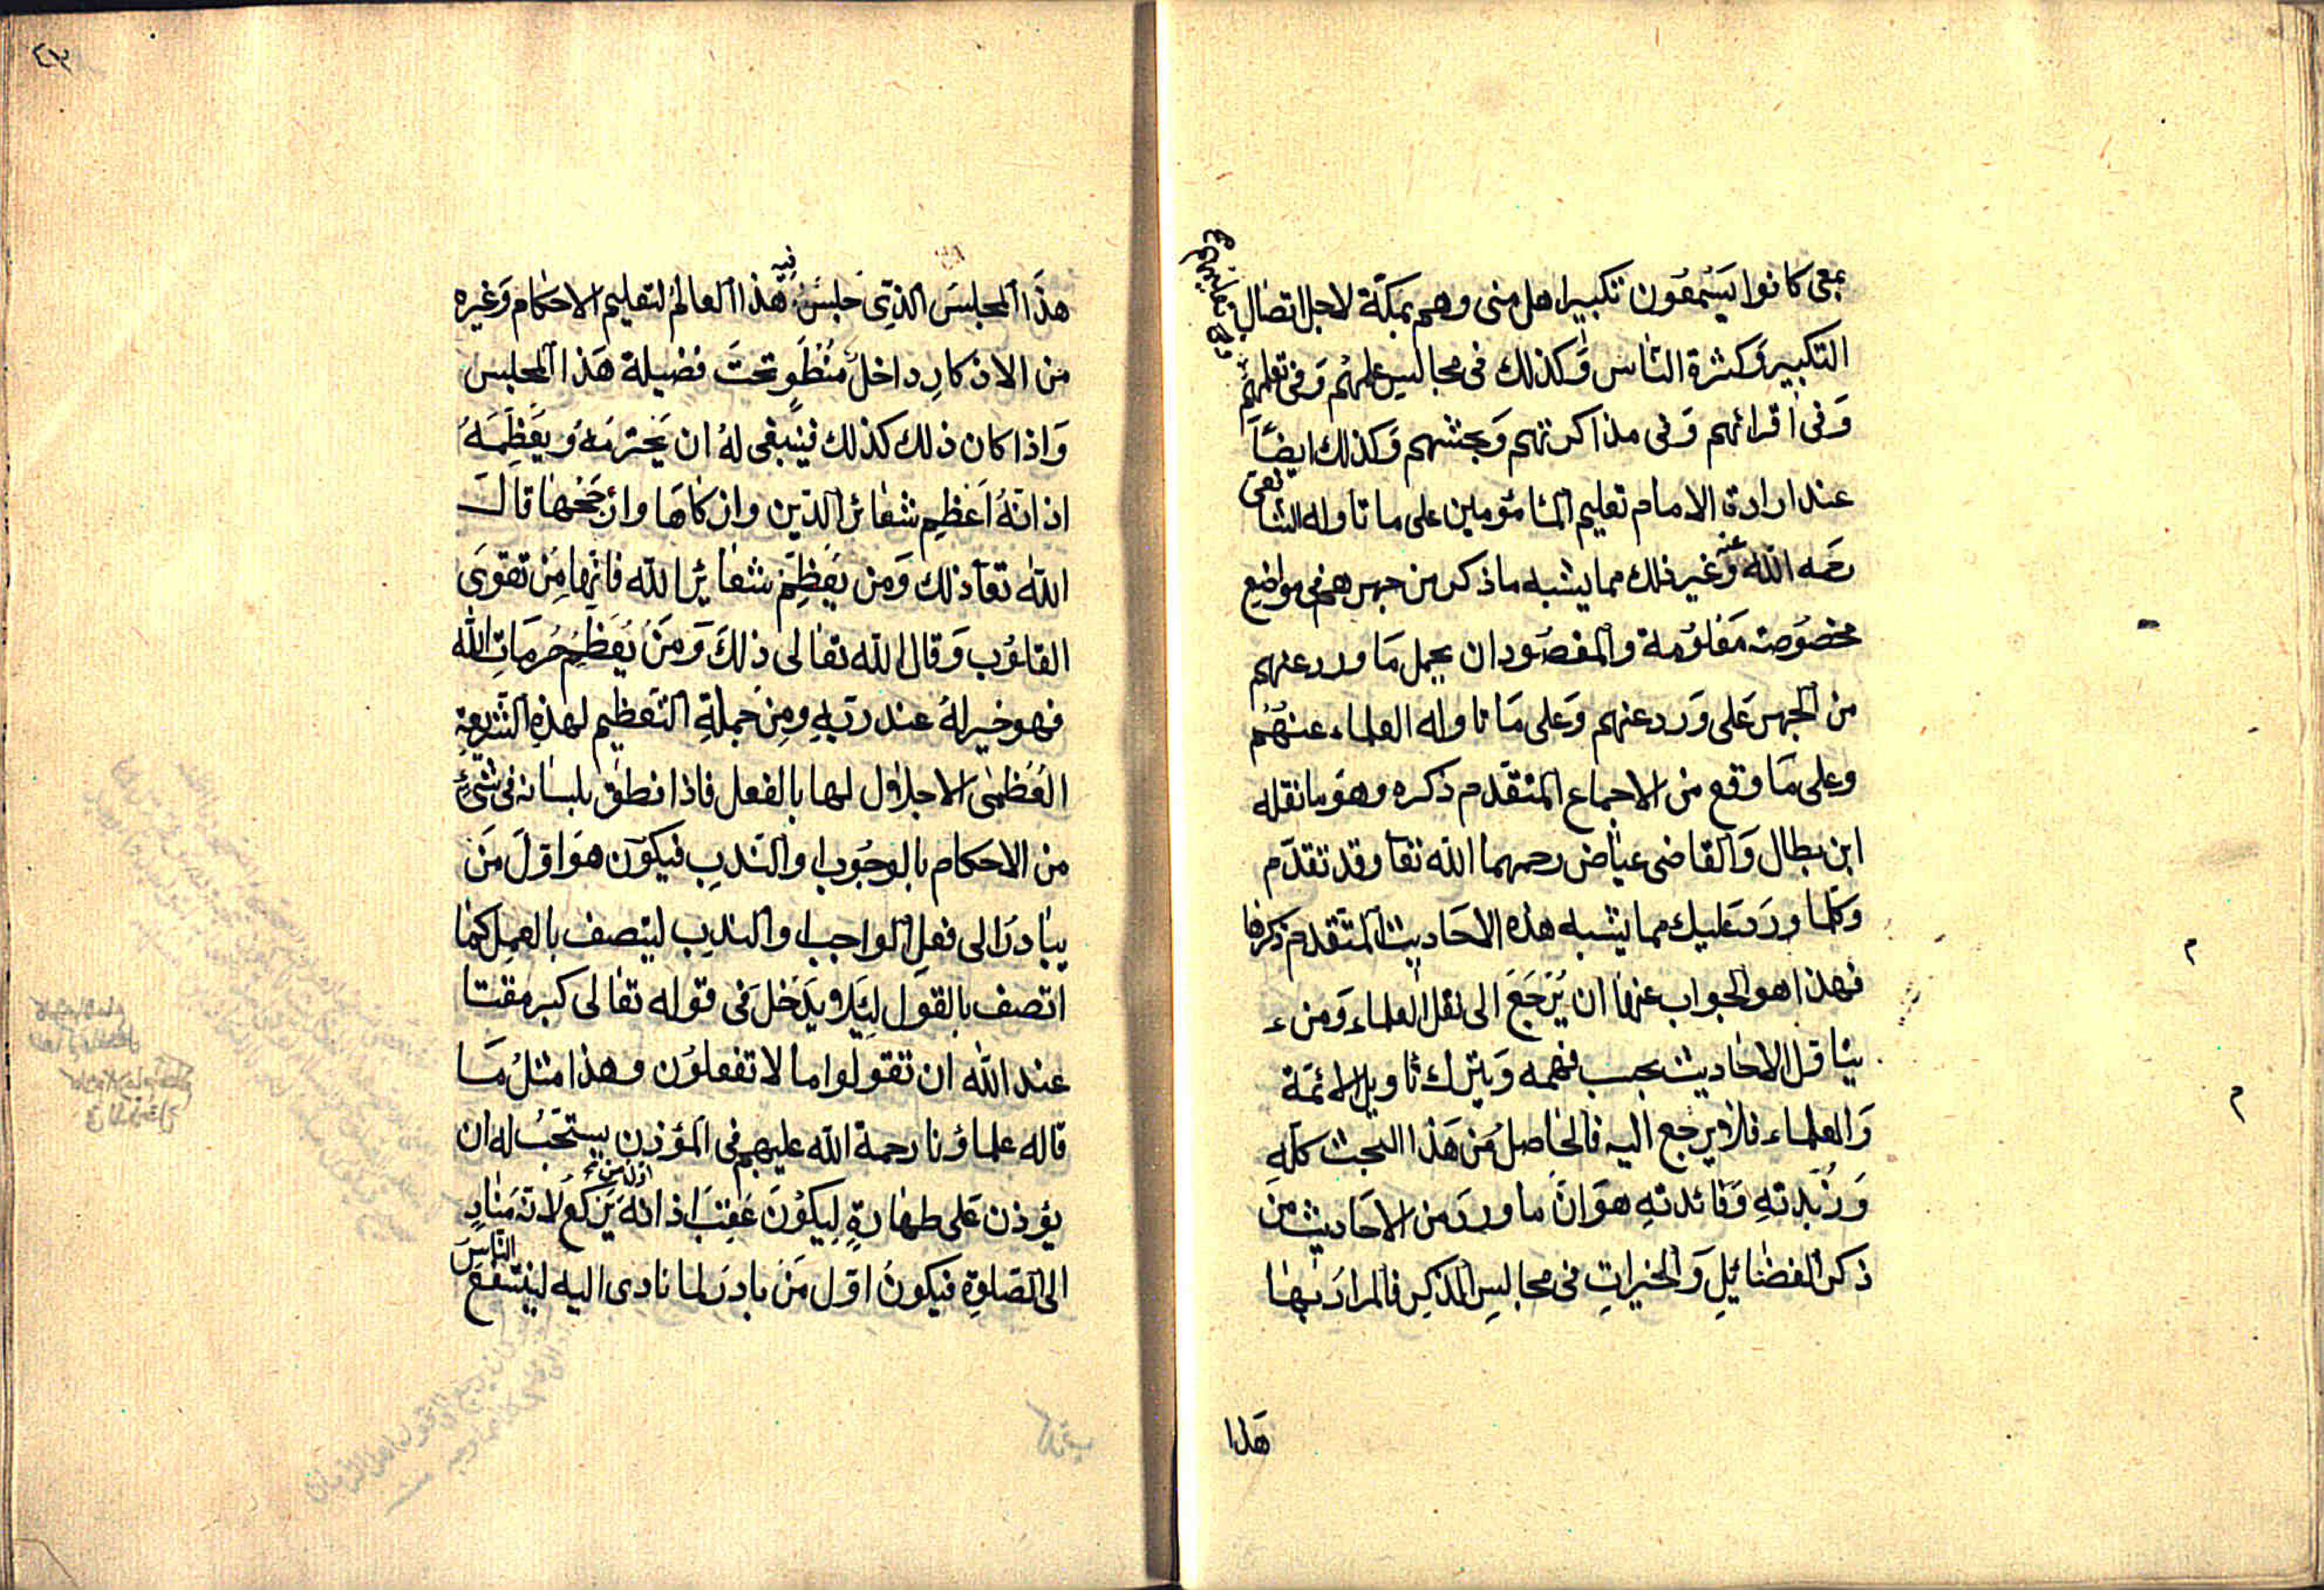 بمعنى كانوا يسمعون تكبير اهل منى وهم بمكة لاجل اتصال
التكبير وكثرة الناس وكذلك فى مجالس علمهم وفى تعلمهم
وفى اقرائهم وفى مذاكرتهم وبحثهم وكذلك ايضاً
عند ارادة الامام تعليم المأمومين على ما تاوله الشافعى
رحمه الله وغير ذلك مما يشبه ما ذكر من جهرهم فى مواضع
مخصوصة معلومة والمقصود ان يحمل ما ورد عنهم
من الجهر على ورد عنهم وعلى ما تاوله العلماء عنهم
وعلى ما وقع من الاجماع المتقدم ذكره وهو ما نقله
ابن بطال والقاضى عياض رحمهما الله تعا وقد تقدم
وكلما ورد عليك مما يشبه هذه الاحاديث المتقدم ذكرها
فهذا هو الجواب عنها ان يرجع الى نقل العلماء ومن
يتاول الاحاديث بحسب فهمه ويترك تاويل الائمة
والعلماء فلا يرجع اليه فالحاصل من هذا البحث كله
وزبدته وفائدته هو ان ما ورد من الاحاديث من
ذكر الفضائل والخيرات فى مجالس الذكر فالمراد بها
هذا
٤٣
هذا المجلس الذى جلس فيه هذا العالم لتعليم الاحكام وغيره
من الاذكار داخل منطو تحت فضيلة هذا المجلس
واذا كان ذلك كذلك فينبغى له ان يحترمه ويعظمه
اذ انه اعظم شعائر الدين وازكاها وارجحها قال
الله تعا ذلك ومن يعظم شعائر الله فانها من تقوى
القلوب وقال الله تعالى ذلك ومن يعظم حرمات الله
فهو خير له عند ربه ومن جملة التعظيم لهذه الشريعة
العظمى الاجلال لها بالفعل فاذا نطق بلسانه فى شئ
من الاحكام بالوجوب او الندب فيكون هو اول من
يبادر الى فعل الواجب او الندب ليتصف بالعمل كما
اتصف بالقول ليلا يدخل فى قوله تعالى كبر مقتا
عند الله ان تقولوا ما لا تفعلون وهذا مثل ما
قاله علماؤنا رحمة الله عليهم فى المؤذن يستحب له ان
يؤذن على طهارة ليكون عقب اذانه يركع لانه مناد
الى الصلوة فيكون اول من بادر لما نادى اليه لينتفع الناس